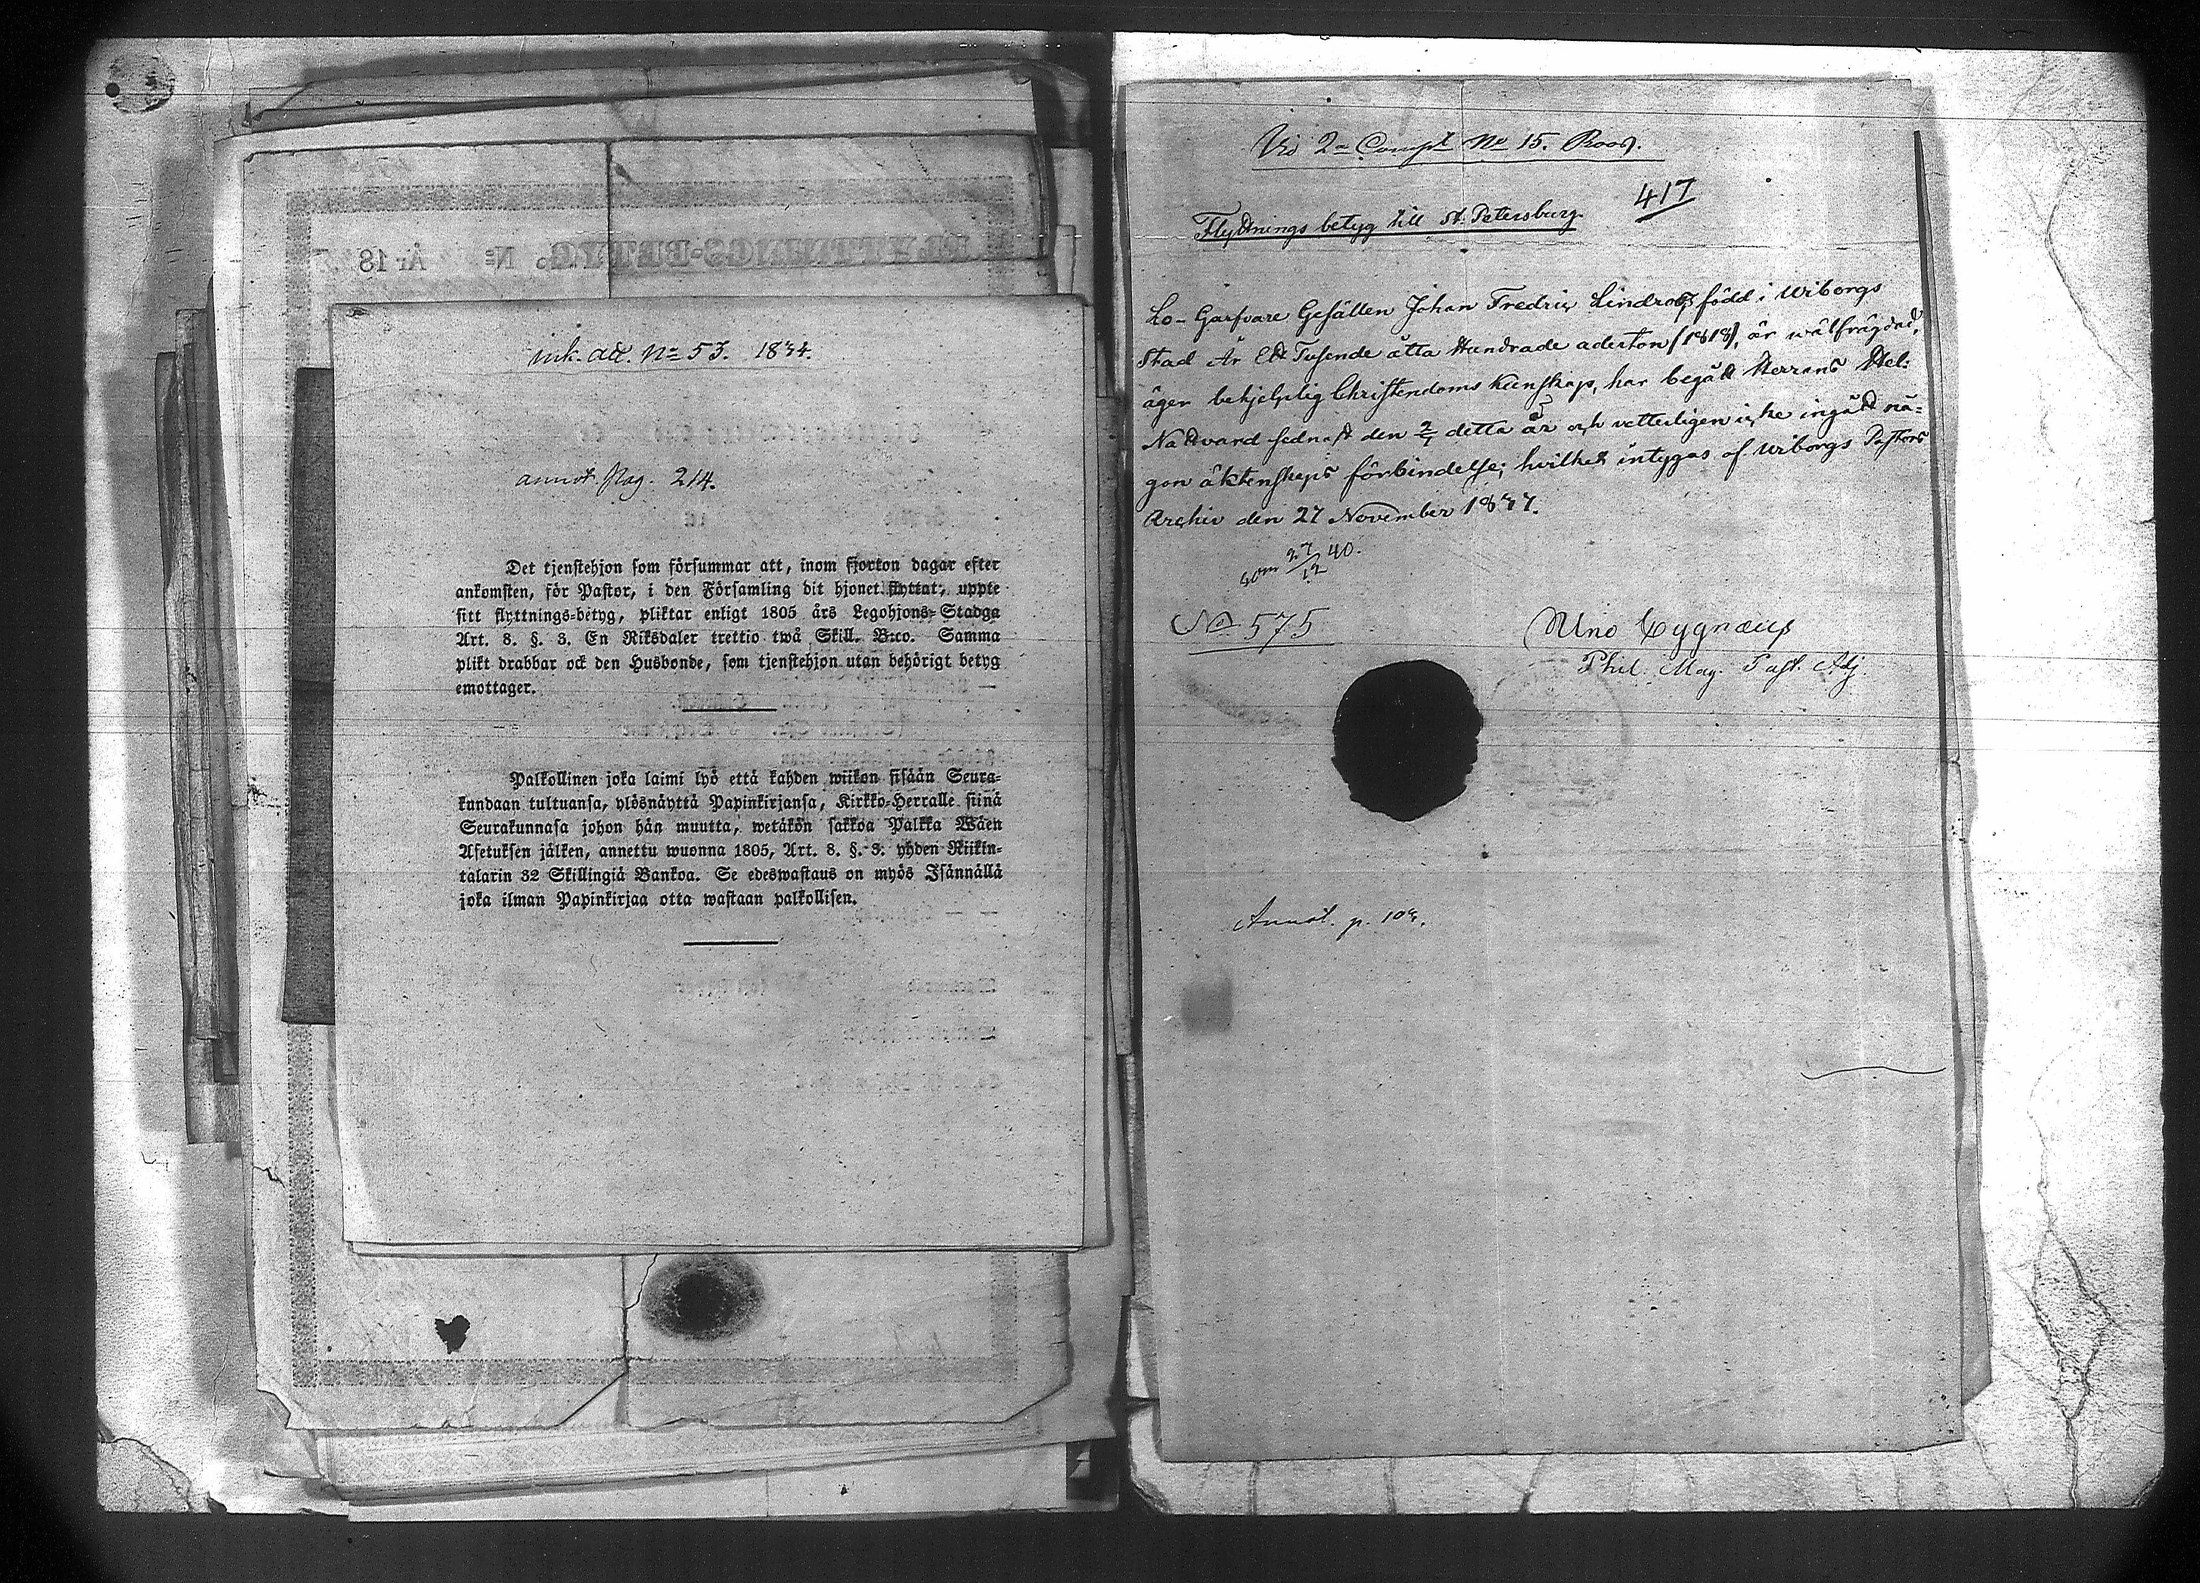 ink. att. No 53. 1834.
annot. Pag. 214.
Det tjenstehjon som försummar att, inom fjorton dagar efter
ankomsten, för Pastor, i den Församling dit hjonet flyttat, uppte
sitt flyttnings-betyg, pliktar enligt 1805 års Legohjons-Stadga
Art. 8. §. 3. En Riksdaler trettio twå Skill. B:co. Samma
plikt drabbar ock den Husbonde, som tjenstehjon utan behörigt betyg
emottager.
Palkollinen joka laimi lyö että kahden wiikon sisään Seura-
kundaan tultuansa, ylösnäyttä Papinkirjansa, Kirkko-Herralle siinä
Seurakunnasa johon hän muutta, wetäkön sakkoa Palkka Wäen
Asetuksen jälken, annettu wuonna 1805, Art. 8. §. 3. yhden Riikin-
talarin 32 Skillingiä Bankoa. Se edeswastaus on myös Isännällä
joka ilman Papinkirjaa otta wastaan palkollisen.
FLYTTNINGS-BETYG. No År 18
Vid 2a Comp No 15.
417
Flyttnings betyg till St. Petersburg.
Lo-Garfvare Gesällen Johan Fredric Lindroos född i Wiborgs
Stad År Ett Tusende åtta Hundrade aderton (1818), är wälfrägdad,
äger behjelplig Christendoms kunskap, har begått Herrans Hel:
Nattvard sednast den detta år och vetterligen icke ingått nå-
gon äktenskaps förbindelse; hvilket intygas af Wiborgs Pastors
Archiv den 27 November 1837.
27/12 40.
No 575
Uno Cygnæus
Phil. Mag. Past. Adj.
Annot. p. 108.